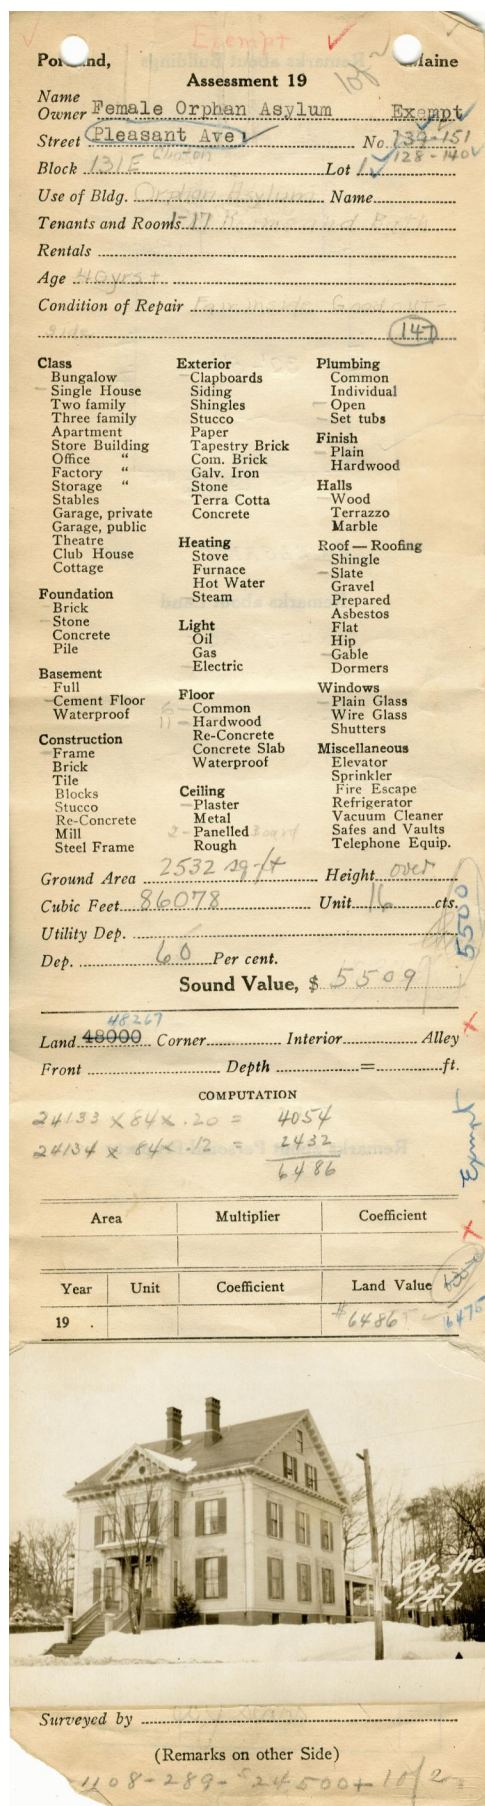 Exempt
Portland, Maine
Assessment 19
Name
Owner Female Orphan Asylum Exempt
Street Pleasant Ave. No. 139-151
Clinton 128-140
Block 131E Lot 1
Use of Bldg. Orphan Asylum Name
Tenants and Rooms 1-17 Rooms and Bath
Rentals
Age 40 yrs +
Condition of Repair Fair inside Good out-
side
147
Class
Bungalow
Single House
Two family
Three family
Apartment
Store Building
Office "
Factory "
Storage "
Stables
Garage, private
Garage, public
Theatre
Club House
Cottage
Foundation
Brick
Stone
Concrete
Pile
Basement
Full
Cement Floor
Waterproof
Construction
Frame
Brick
Tile
Blocks
Stucco
Re-Concrete
Mill
Steel Frame
Exterior
Clapboards
Siding
Shingles
Stucco
Paper
Tapestry Brick
Com. Brick
Galv. Iron
Stone
Terra Cotta
Concrete
Heating
Stove
Furnace
Hot Water
Steam
Light
Oil
Gas
Electric
Floor
Common
11 - Hardwood
Re-Concrete
Concrete Slab
Waterproof
Ceiling
Plaster
Metal
2 - Panelled Board
Rough
Plumbing
Common
Individual
Open
Set tubs
Finish
Plain
Hardwood
Halls
Wood
Terrazzo
Marble
Roof — Roofing
Shingle
Slate
Gravel
Prepared
Asbestos
Flat
Hip
Gable
Dormers
Windows
Plain Glass
Wire Glass
Shutters
Miscellaneous
Elevator
Sprinkler
Fire Escape
Refrigerator
Vacuum Cleaner
Safes and Vaults
Telephone Equip.
Ground Area 2532 sq-ft Height over
Cubic Feet 86078 Unit 16 cts.
Utility Dep.
Dep. 60 Per cent.
5500
Sound Value, $ 5509
48267
Land 48000 Corner Interior Alley
Front Depth = ft.
COMPUTATION
24133 x 84 x .20 = 4054
24134 x 84 x .12 = 2432
6486
Exempt
Area Multiplier Coefficient
Year Unit Coefficient Land Value
19 . $6486
6475
Pls. Ave
147
Surveyed by
(Remarks on other Side)
1108-289-$24,500+ 10/2